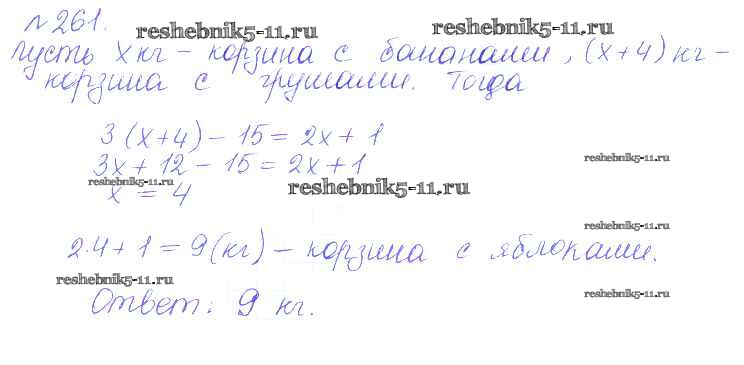 №261.
reshebnik5-11.ru
reshebnik5-11.ru
Пусть х кг - корзина с бананами, (х+4) кг -
корзина с грушами. Тогда
3(х+4) - 15 = 2х + 1
3х + 12 - 15 = 2х + 1
reshebnik5-11.ru
reshebnik5-11.ru
х = 4
reshebnik5-11.ru
reshebnik5-11.ru
2·4 + 1 = 9 (кг) - корзина с яблоками.
reshebnik5-11.ru
reshebnik5-11.ru
Ответ: 9 кг.